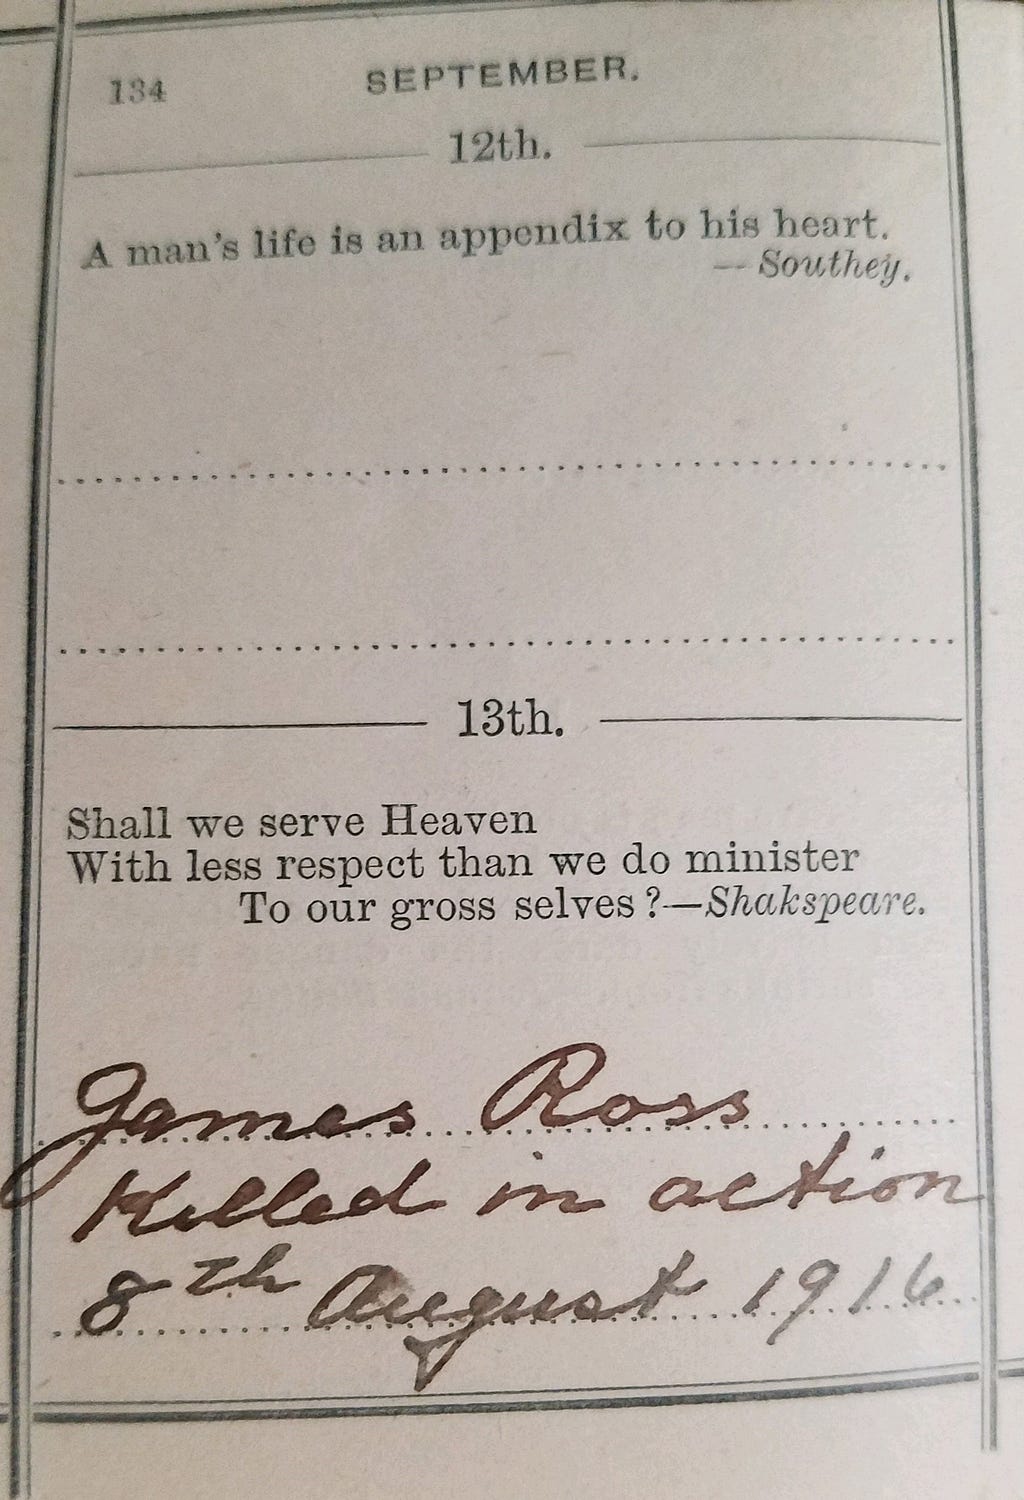 134 SEPTEMBER.
12th.
A man's life is an appendix to his heart.
— Southey.
13th.
Shall we serve Heaven
With less respect than we do minister
To our gross selves?—Shakspeare.
James Ross
Killed in action
8th August 1916